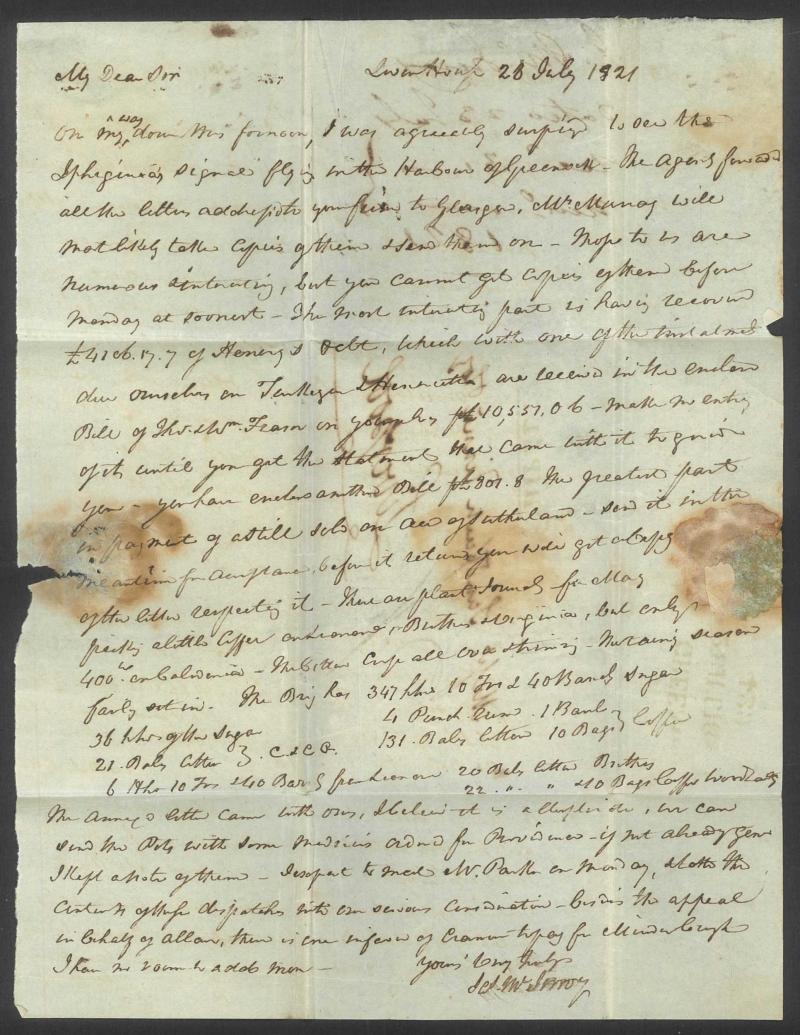 My Dear Sir Levan House 28 July 1821
On my way down this forenoon, I was agreeably surprised to see the
Iphigenia's signal flying in the Harbour of Greenock – The Agents forward
all the letters addressed to your firm to Glasgow, Mr Murray will
most likely take copies of them & send them on – Those to us are
numerous & interesting, but you cannot get copies of them before
Monday at soonest – The most interesting part is having received
£4106.17.7 of Henery's debt, which with one of the instalments
due ourselves on & Henrietta are received in the enclosed
Bill of Thos. & Wm. on 10,557.0.6 – make no entry
of it until you get the statement that came with it to guide
you – you have enclosed another Bill 801.8 the greatest part
in payment of a still sold on acct of Sutherland – send it in the
meantime for acceptance, before it returns you will get a copy
of the letter respecting it – There are plant Journals for May
a little Coffee on Lenora, Brothers & Virginia, but only
400 on Caledonia – The Cotton Crops all over – The rainy season
fairly set in – The Brig has 347 hhds 10 Trs & 40 Barrels Sugar
36 hhds of the Sugar 4 Punch Rum 1 Barl
21 Bales Cotton } C & C 131 Bales Cotton 10 Bags Coffee
6 Hhds 10 Trs & 40 Bar from 20 Bales Cotton Brothers
22 " " & 10 Bags Coffee
The Annexed letter came with ours, I believe it is a duplicate, we can
send the Pots with some Medicines ordered for Providence – if not already gone
I kept a note of them – I expect to meet Mr. Parker on Monday, & take the
contents of these dispatches into our serious Consideration – besides the appeal
in behalf of Allan, there is one in favor of to pay for
I have no room to add more – Yours very truly
McInroy